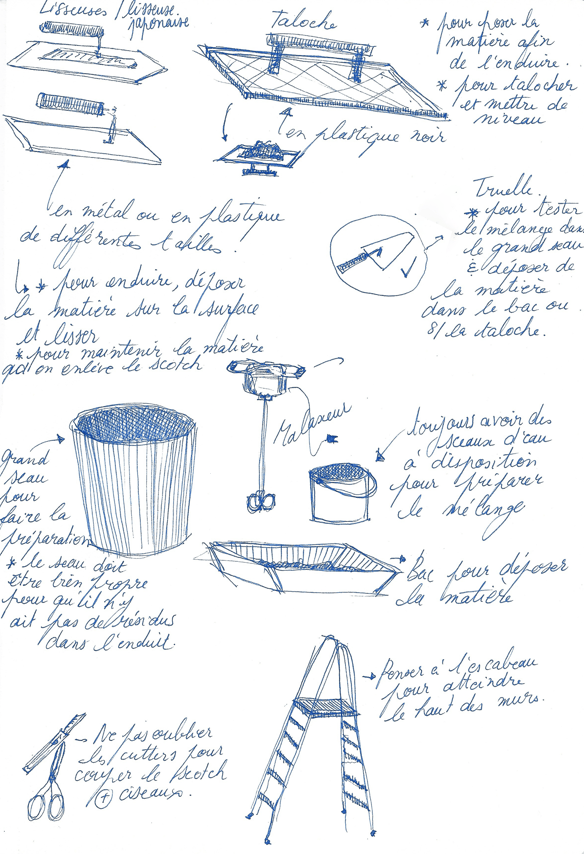 Lisseuses / lisseuse.
japonaise
taloche
* pour poser la
matière afin
de l'enduire.
* pour talocher
et mettre de
niveau
en plastique noir
en métal ou en plastique
de différentes tailles.
* pour enduire, déposer
la matière sur la surface
et lisser
* pour maintenir la matière
qd on enlève le scotch
Truelle.
* pour tester
le mélange dans
le grand seau
& déposer de
la matière
dans le bac ou
s/ la taloche.
Malaxeur
toujours avoir des
sceaux d'eau
à disposition
pour préparer
le mélange
grand
seau
pour
faire la
préparation
* le seau doit
être bien propre
pour qu'il n'y
ait pas de résidus
dans l'enduit.
Bac pour déposer
la matière
Penser à l'escabeau
pour atteindre
le haut des murs.
Ne pas oublier
les cutters pour
couper le scotch
+ ciseaux.